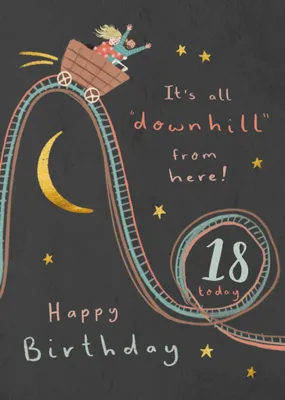 It's all
"downhill"
from
here!
18
today
Happy
Birthday